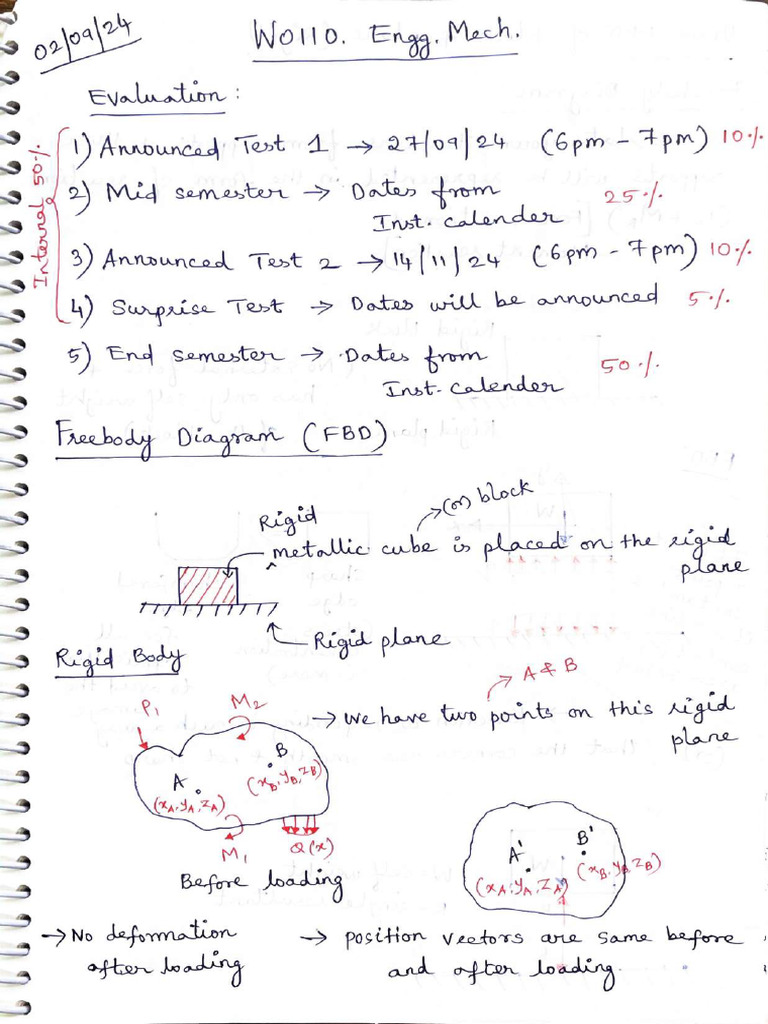 02/09/24
WO110. Engg. Mech.
Evaluation:
Internal 50%
1) Announced Test 1 → 27/09/24 (6pm - 7pm) 10%
2) Mid semester → Dates from 25%
Inst. calender
3) Announced Test 2 → 14/11/24 (6pm - 7pm) 10%
4) Surprise Test → Dates will be announced 5%
5) End semester → Dates from 50%
Inst. calender
Freebody Diagram (FBD)
→ (or) block
Rigid
metallic cube is placed on the rigid
plane
Rigid plane
Rigid Body
→ A & B
P1 M2
→ we have two points on this rigid
plane
A B
(xA, yA, zA) (xB, yB, zB)
M1 Q(x)
Before loading
A' B'
(xA, yA, zA) (xB, yB, zB)
→ No deformation
after loading
→ position vectors are same before
and after loading.